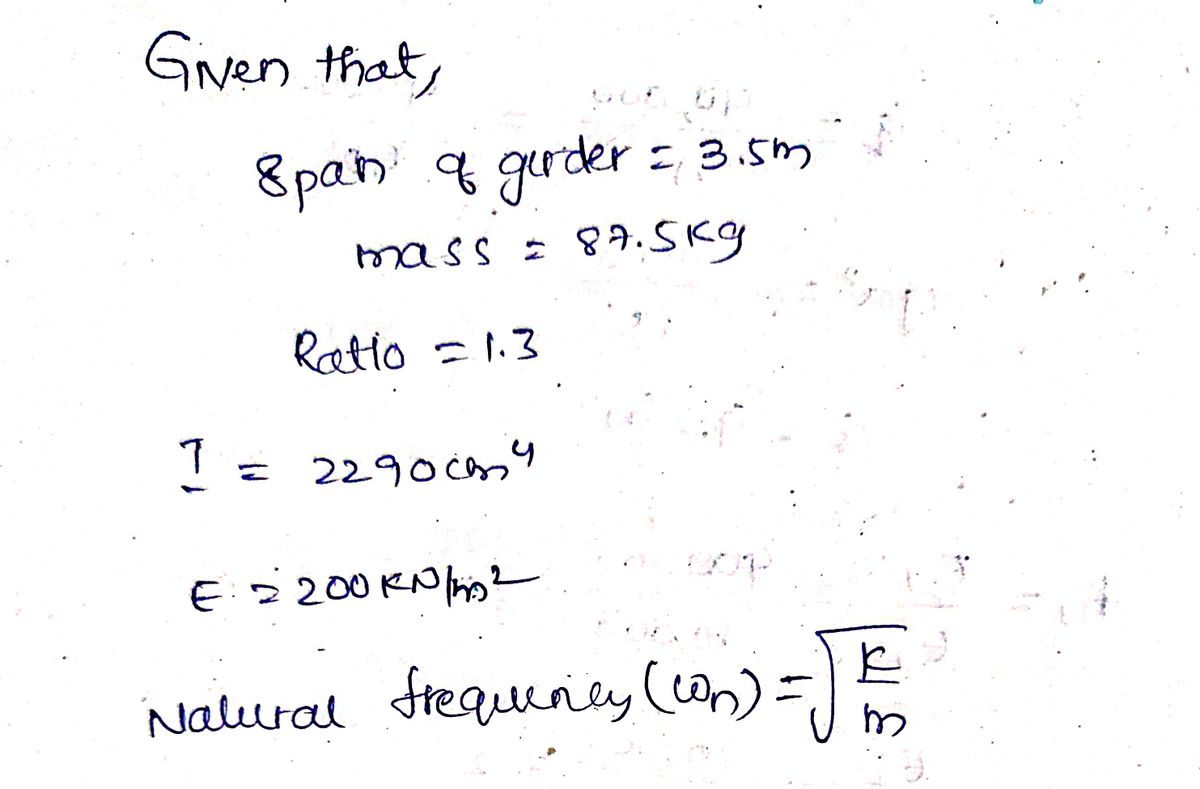 Given that,
Span of girder = 3.5m
mass = 87.5Kg
Ratio = 1.3
I = 2290cm⁴
E = 200KN/m²
Natural frequency (ωn) = √K/m